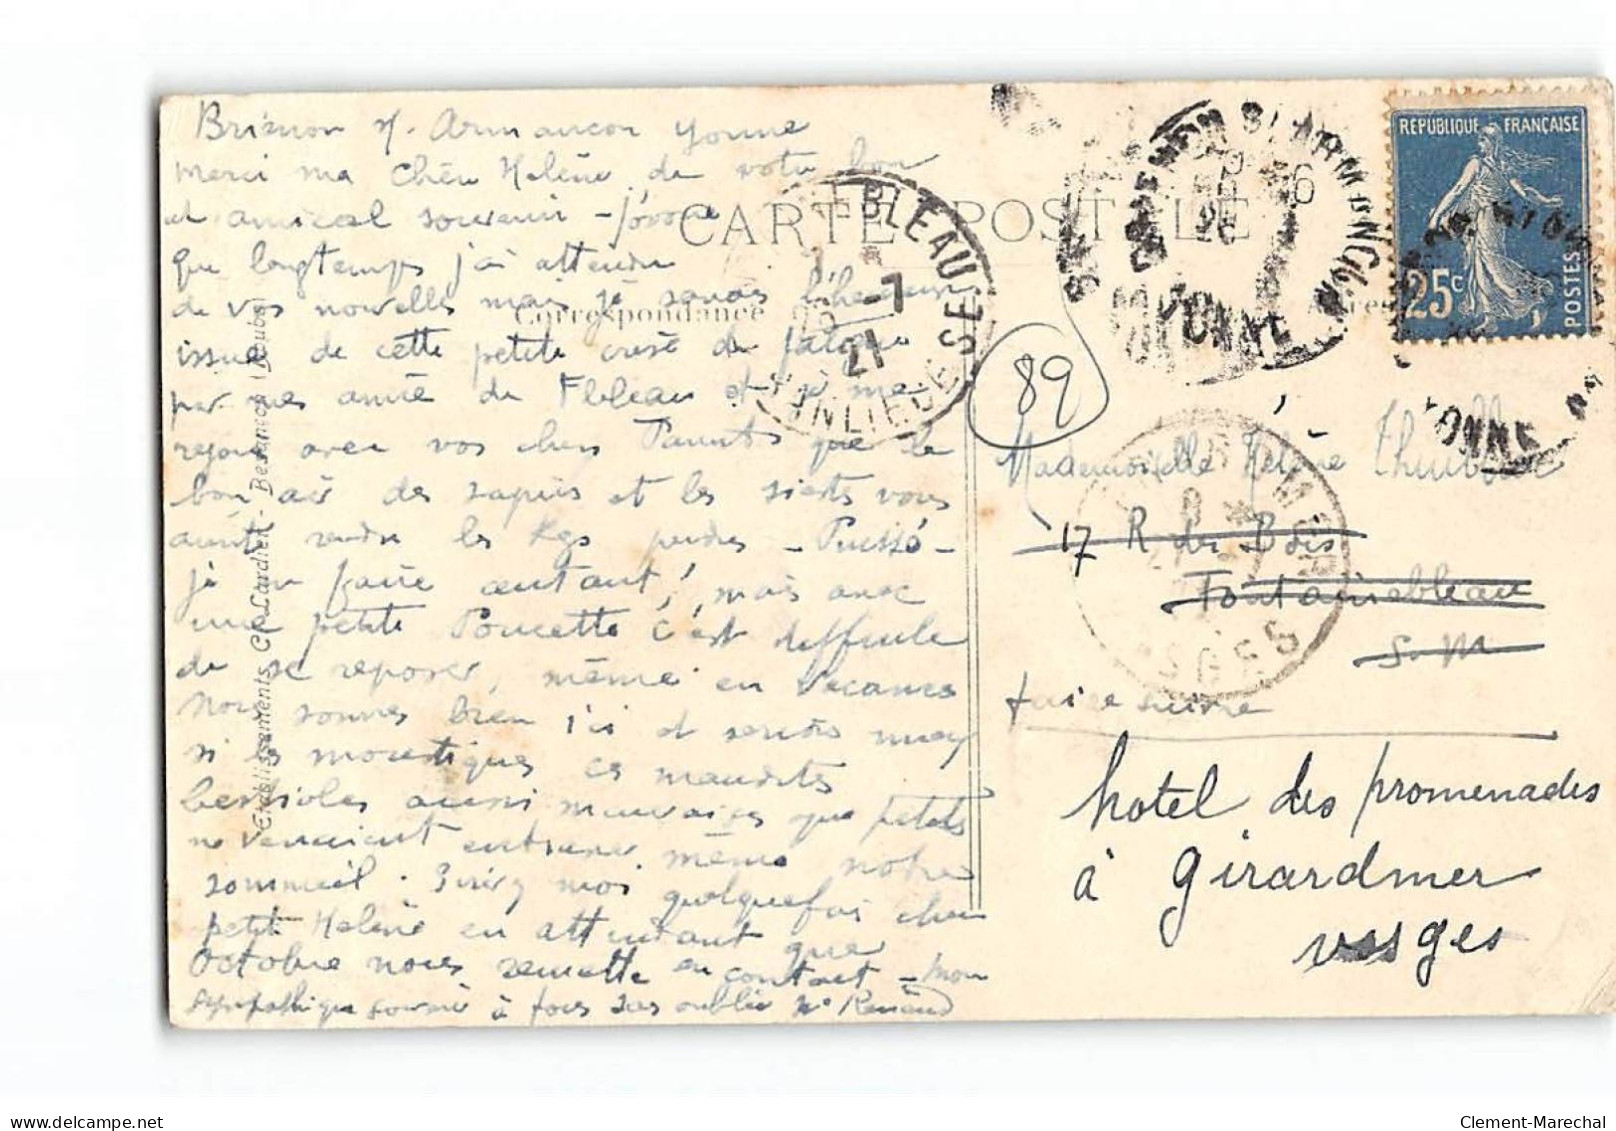 Brienon s/. Armançon Yonne
Merci ma Chère Hélène de votre bon
et amical souvenir - j'avoue
que longtemps j'ai attendu
de vos nouvelles mais je savais l'heureuse
issue de cette petite crise de fatigue
par mes amies de Fbleau et je me
rejouis avec vos chers Parents que le
bon air des sapins et les siestes vous
aient rendu les Kgs perdus - Puissé-
je en faire autant! mais avec
une petite Poucette c'est difficile
de se reposer, même en vacances
Nous sommes bien ici et serions
si les moustiques ces maudites
bestioles aussi mauvaises que petites
ne venaient entraver même notre
sommeil. Ecrivez moi quelquefois chère
petite Hélène en attendant que
Octobre nous remette en contact - Mon
sympathique souvenir à tous sans oublier Renaud
CARTE POSTALE
Correspondance
Etablissements C. Lardier - Besançon (Doubs)
RÉPUBLIQUE FRANÇAISE
25c
POSTES
BRIENON S/ ARMANÇON
YONNE
BLEAU
-7
21
SE
89
Mademoiselle Hélène
17 R des Bois
Fontainebleau
S. M
faire suivre
hotel des promenades
à Girardmer
vosges
Clement-Marechal